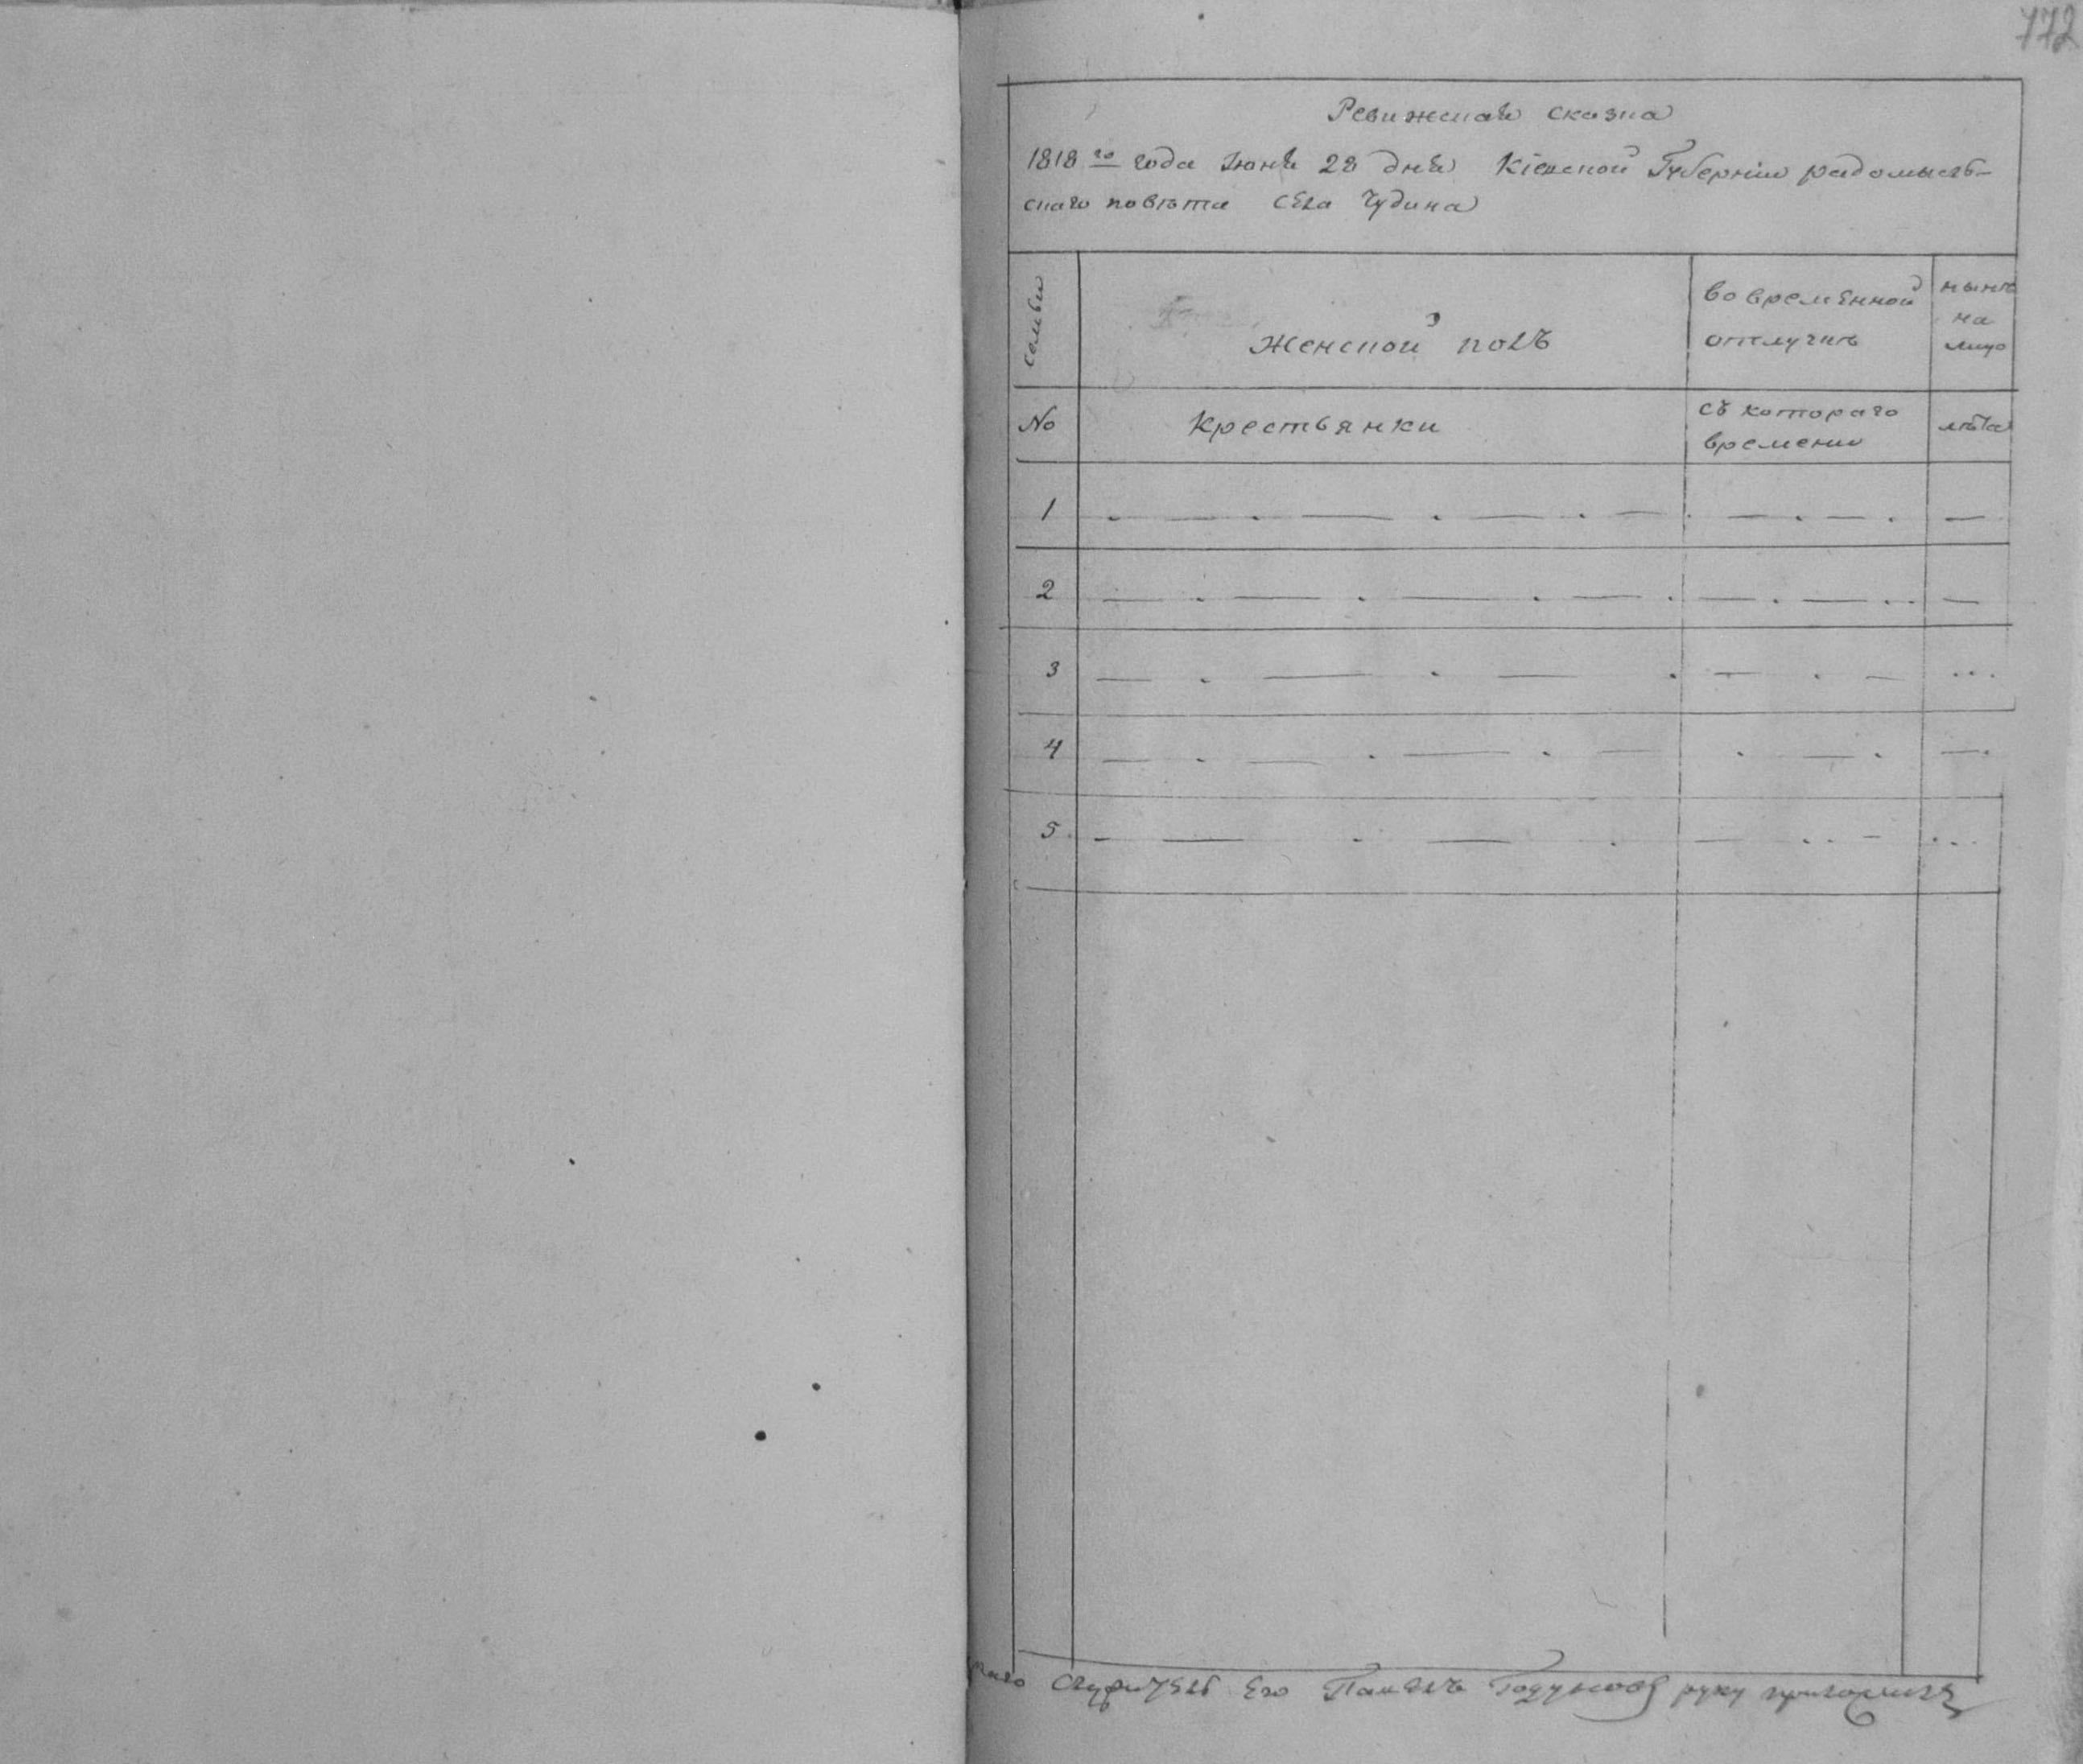 772
Ревижская сказка
1818го года Июня 28 дня Кіевской Губерніи радомысль-
скаго повѣта села Чудина
семьи
женской полъ
во временной
отлучкѣ
нынѣ
на
лицо
No
Крестьянки
съ котораго
времени
лѣта
1
2
3
4
5
Его Павелъ Годуновъ руку приложилъ